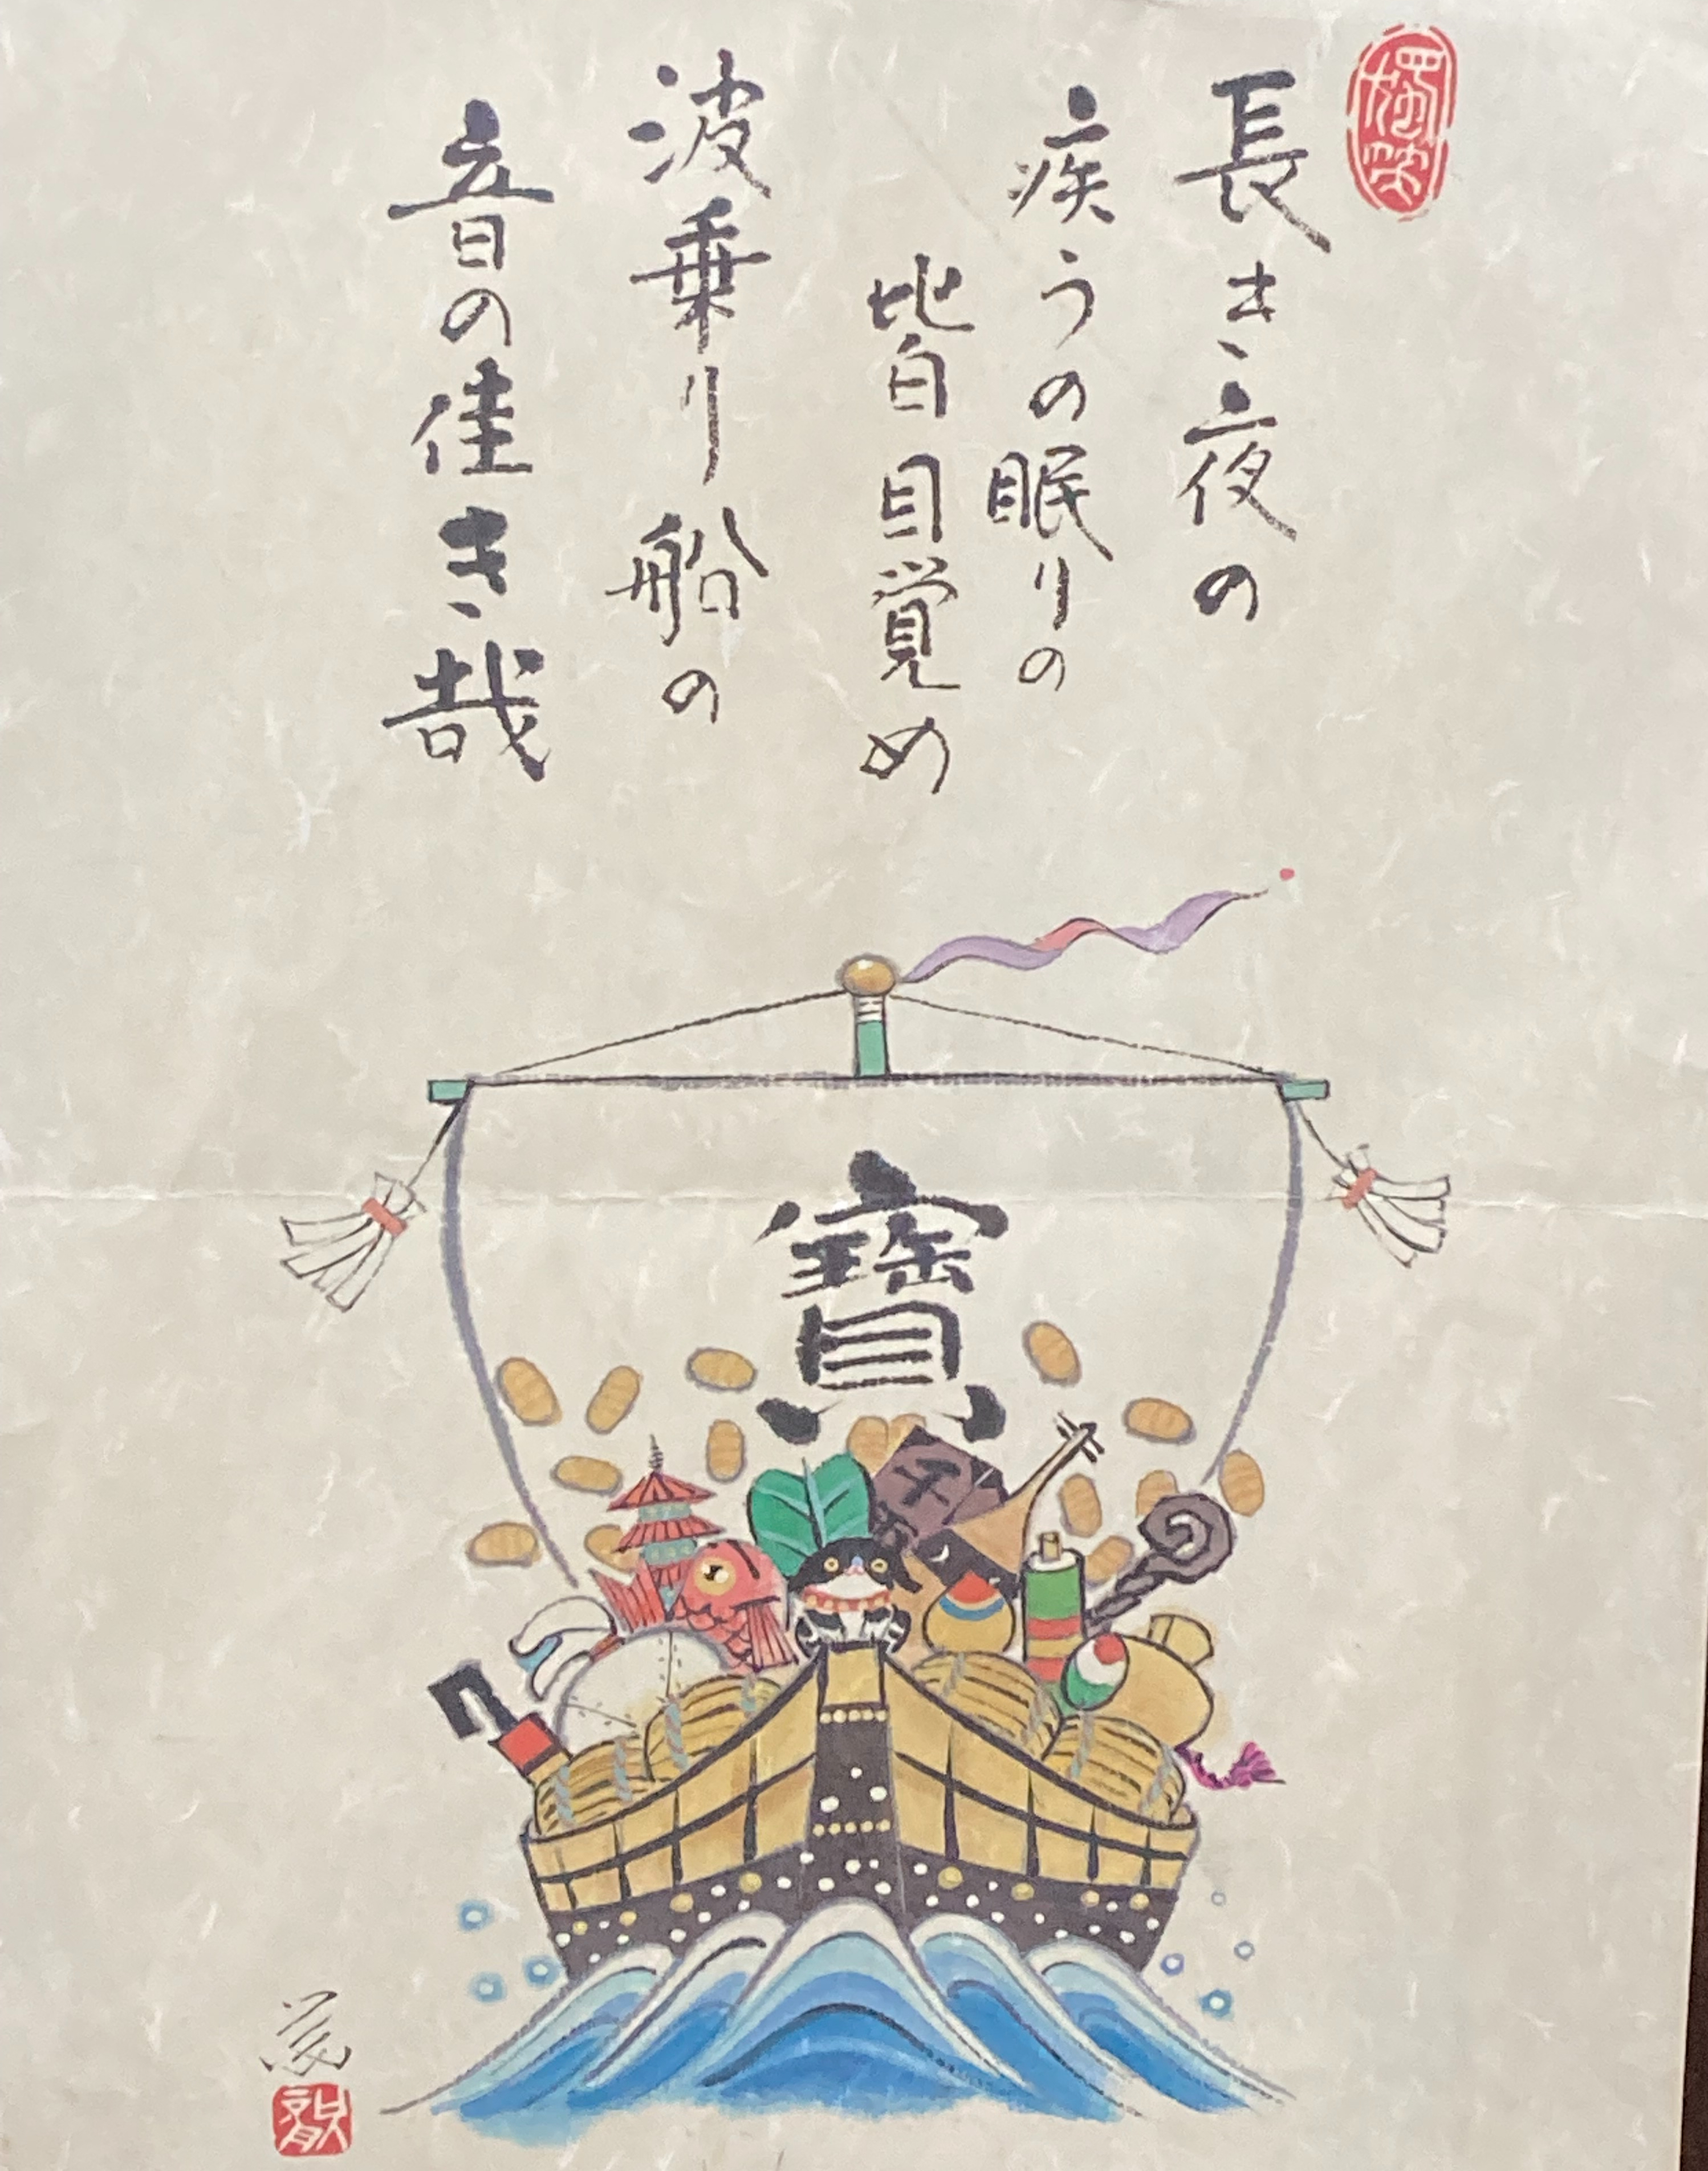 長き夜の
疾うの眠りの
皆目覚め
波乗り船の
音の佳き哉
寶
千